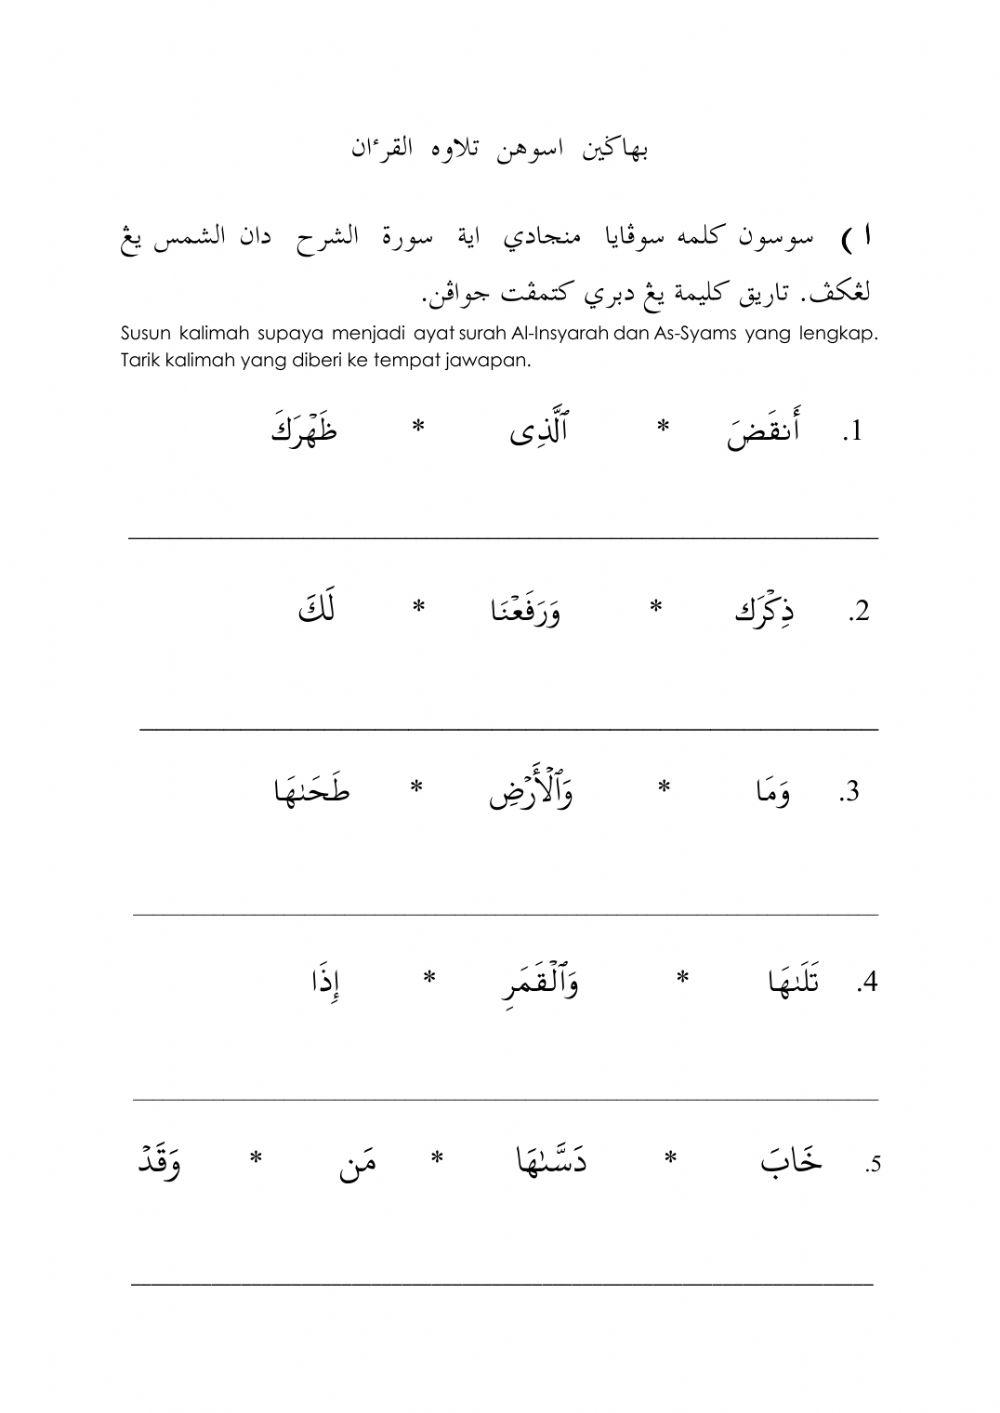 بهاڬين اسوهن تلاوه القرءان
ا ) سوسون كلمه سوڤايا منجادي اية سورة الشرح دان الشمس يڠ
لڠكڤ. تاريق كليمة يڠ دبري كتمڤت جواڤن.
Susun kalimah supaya menjadi ayat surah Al-Insyarah dan As-Syams yang lengkap.
Tarik kalimah yang diberi ke tempat jawapan.
1. أَنقَضَ * ٱلَّذِى * ظَهْرَكَ
2. ذِكْرَك * وَرَفَعْنَا * لَكَ
3. وَمَا * وَٱلْأَرْضِ * طَحَىٰهَا
4. تَلَىٰهَا * وَٱلْقَمَرِ * إِذَا
5. خَابَ * دَسَّىٰهَا * مَن * وَقَدْ